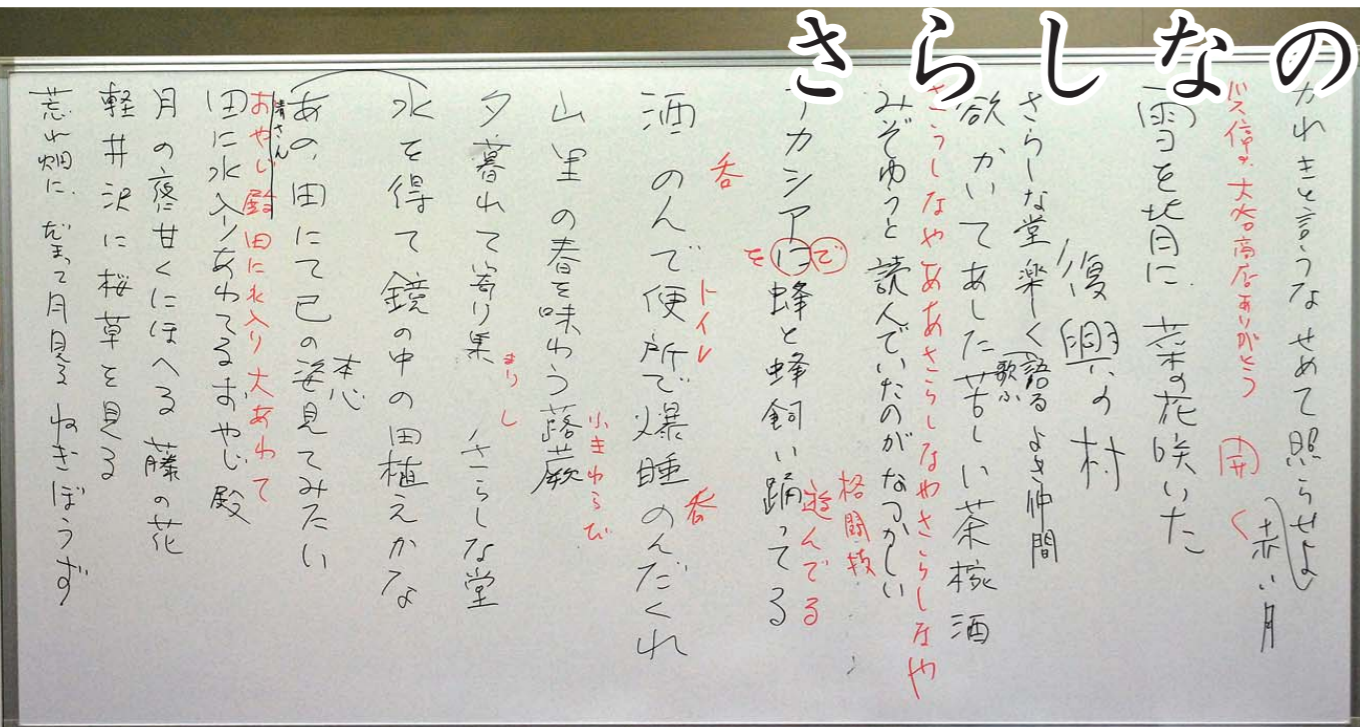 さらしなの
かれきと言うな せめて照らせよ
赤い月
バス停が 大谷商店ありがとう
開く
雪を背に 菜の花咲いた
復興の村
さらしな堂楽く語るよき仲間
歌ふ
欲かいてあした苦しい茶椀酒
さらしなやああさらしなやさらしなや
みぞゆうと読んでいたのがなつかしい
格闘技
アカシアに蜂と蜂飼い踊ってる
で
を
遊んでる
酒のんで便所で爆睡のんだくれ
呑
トイレ
呑
山里の春を味わう蕗蕨
小きわらび
夕暮れて寄り集 さらしな堂
まりし
水を得て鏡の中の田植えかな
あの、田にて己の姿見てみたい
本心
おやじ殿 田に水入り大あわて
田に水入りあわてるおやじ殿
月の窓甘くにほへる藤の花
軽井沢に桜草を見る
荒れ畑に だまって月見る ねぎぼうず